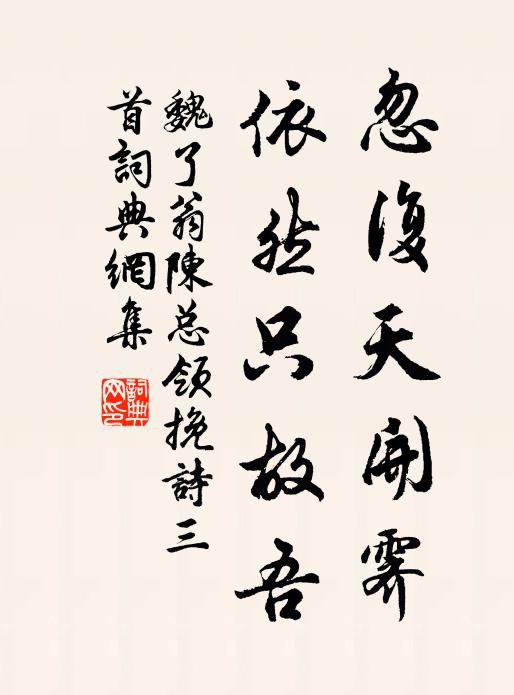 忽復天開霽
依然只故吾
魏了翁陳总領挽詩三
首詞典網集
詞典网印